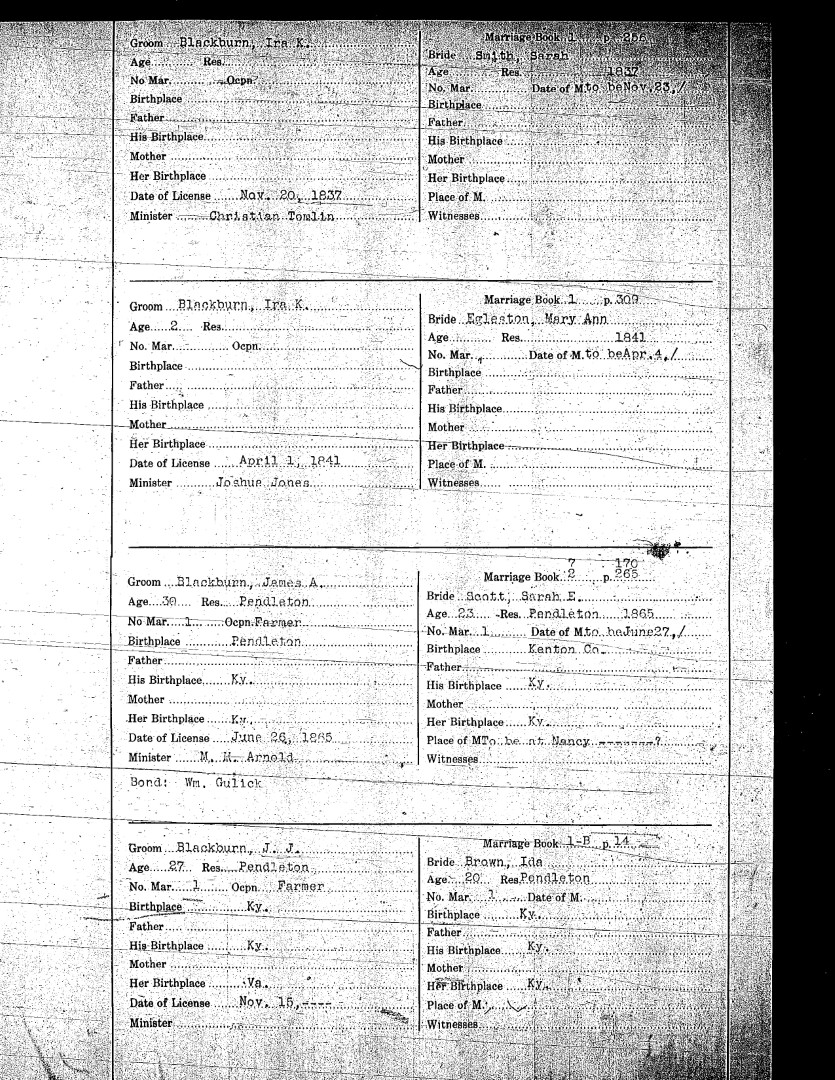 Groom Blackburn, Ira K.
Age Res.
No Mar. Ocpn.
Birthplace
Father
His Birthplace
Mother
Her Birthplace
Date of License Nov. 20, 1837
Minister Christian Tomlin
Marriage Book 1 p. 256
Bride Smith, Sarah
Age Res. 1837
No. Mar. Date of M. to be Nov. 23, /
Birthplace
Father
His Birthplace
Mother
Her Birthplace
Place of M.
Witnesses
Groom Blackburn, Ira K.
Age 2 Res.
No. Mar. Ocpn.
Birthplace
Father
His Birthplace
Mother
Her Birthplace
Date of License April 1, 1841
Minister Joshua Jones
Marriage Book 1 p. 309
Bride Egleston, Mary Ann
Age Res. 1841
No. Mar. Date of M. to be Apr. 4, /
Birthplace
Father
His Birthplace
Mother
Her Birthplace
Place of M.
Witnesses
Groom Blackburn, James A.
Age 30 Res. Pendleton
No Mar. 1 Ocpn. Farmer
Birthplace Pendleton
Father
His Birthplace Ky.
Mother
Her Birthplace Ky.
Date of License June 26, 1865
Minister M. M. Arnold
Bond: Wm. Gulick
7 170
Marriage Book 2 p. 265
Bride Scott, Sarah E.
Age 23 Res. Pendleton 1865
No. Mar. 1 Date of M. to be June 27, /
Birthplace Kenton Co.
Father
His Birthplace Ky.
Mother
Her Birthplace Ky.
Place of M To be at Nancy -------?
Witnesses
Groom Blackburn, J. J.
Age 27 Res. Pendleton
No. Mar. 1 Ocpn Farmer
Birthplace Ky.
Father
His Birthplace Ky.
Mother
Her Birthplace Va.
Date of License Nov. 15, ----
Minister
Marriage Book 1-B p. 14
Bride Brown, Ida
Age 20 Res Pendleton
No. Mar. 1 Date of M.
Birthplace Ky.
Father
His Birthplace Ky.
Mother
Her Birthplace Ky.
Place of M.
Witnesses